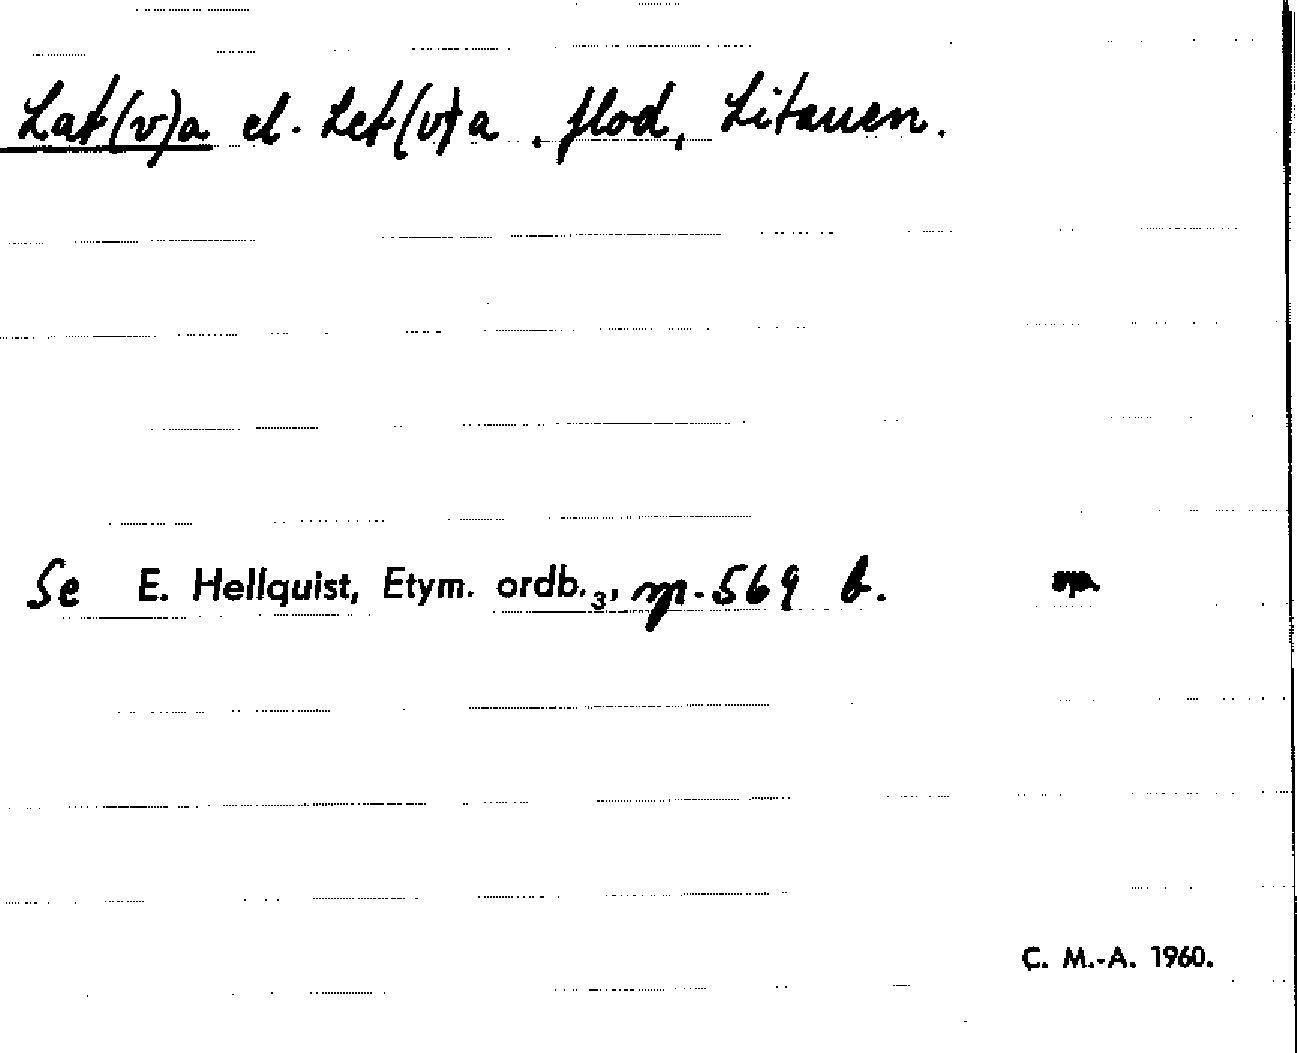 Lat(v)a el. Let(v)a, flod, Litauen.
Se E. Hellquist, Etym. ordb.3, p. 569 b.
C. M.-A. 1960.